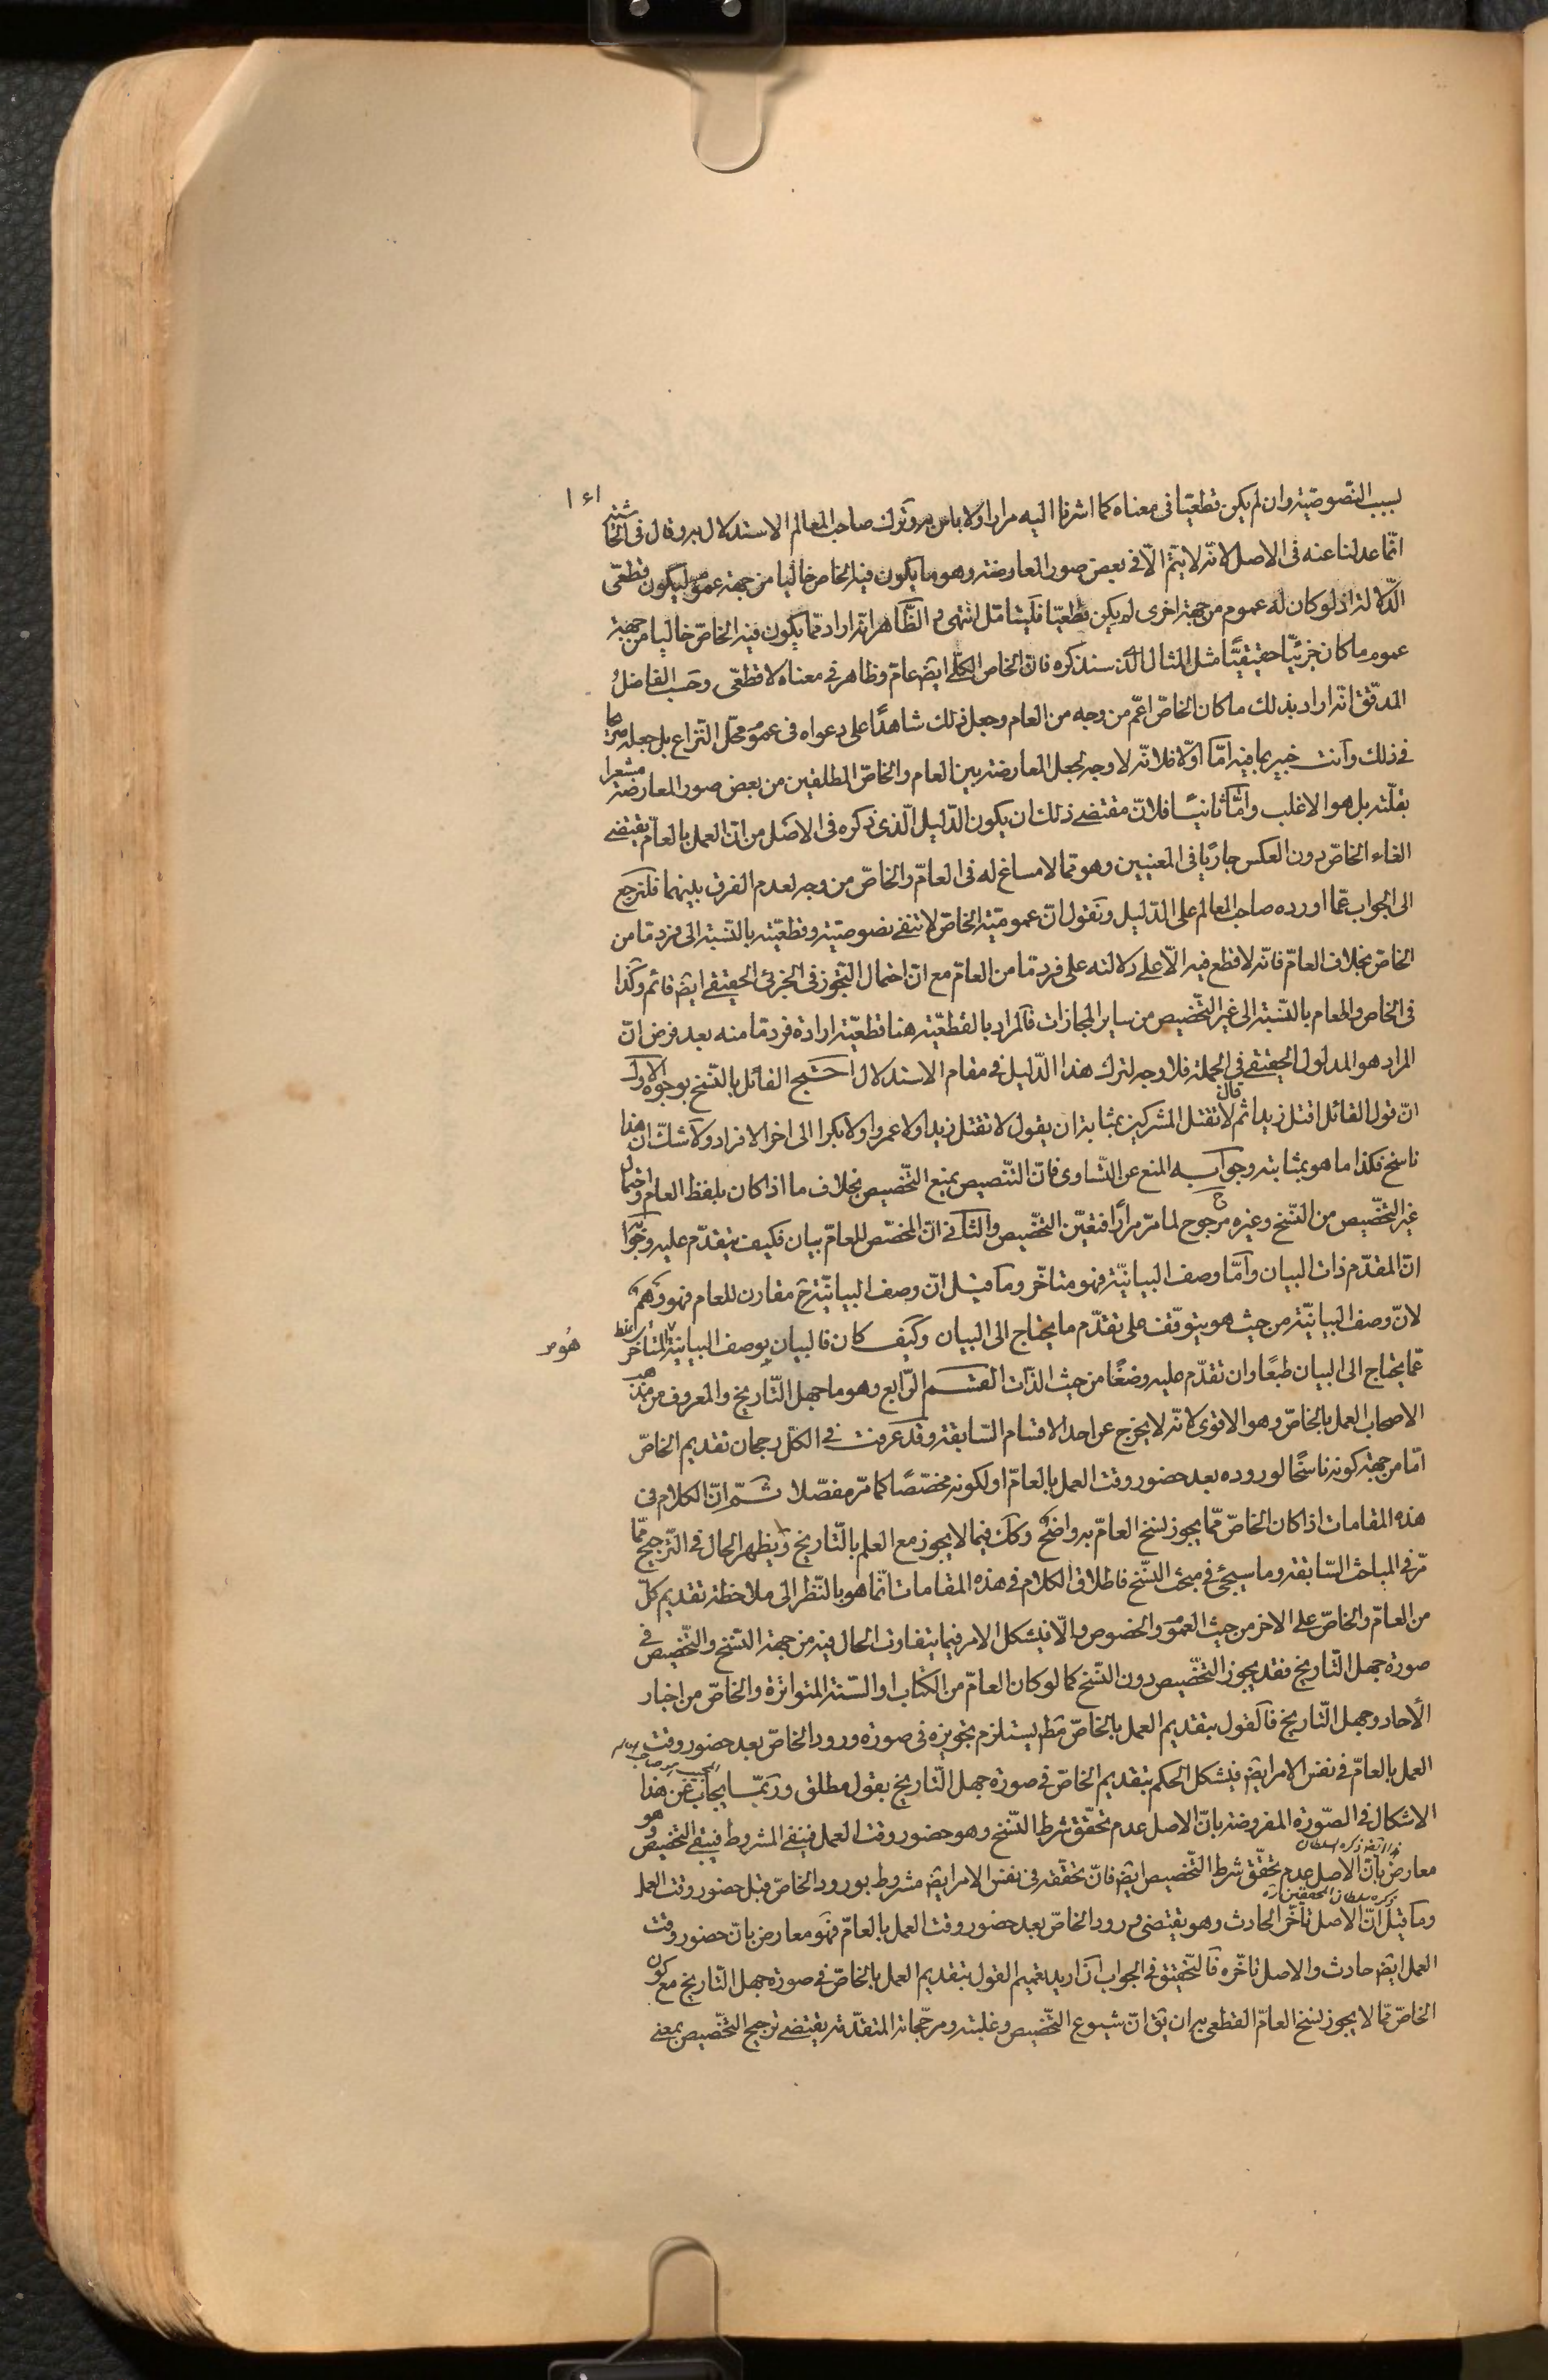 بسبب النصوصيّة وان لم يكن قطعيّا فى معناه كما اشرنا اليه مرارا ولا باس به وترك صاحب المعالم الاستدلال به وقال فى الحاشية
انّما عدلنا عنه فى الاصل لانّه لا يتمّ الّا فى بعض صور المعارضة وهو ما يكون فيه الخاص خاليا من جهة عموم ليكون قطعىّ
الدّلالة اذ لو كان له عموم من جهة اخرى لم يكن قطعيّا فليتامّل انتهى و الظّاهر انّه اراد ممّا يكون فيه الخاصّ خاليا من جهة
عموم ما كان جزئيّا حقيقيّا مثل المثال الّذى سنذكره فانّ الخاص الكلّى ايضا عامّ وظاهر فى معناه لا قطعّى وحسب الفاضل
المدقّق انّه اراد بذلك ما كان الخاصّ اعمّ من وجه من العام وجعل ذلك شاهدًا على دعواه فى عموم محلّ النّزاع بل جعله صريحا
فى ذلك وانت خبير بما فيه امّا اوّلا فلانّه لا وجه لجعل المعارضة بين العام والخاصّ المطلقين من بعض صور المعارضة مشعرا
بقلّته بل هو الاغلب وامّا ثانيًا فلانّ مقتضى ذلك ان يكون الدّليل الّذى ذكره فى الاصل من انّ العمل بالعامّ يقتضى
الغاء الخاصّ دون العكس جاريًا فى المعنيين وهو ممّا لا مساغ له فى العامّ والخاصّ من وجه لعدم الفرق بينهما فلنرجع
الى الجواب عمّا اورده صاحب المعالم على الدّليل ونقول انّ عموميّة الخاصّ لا تنفى نصوصيّته وقطعيّته بالنّسبة الى فرد ما من
الخاصّ بخلاف العامّ فانّه لا قطع فيه الّا على دلالته على فرد ما من العامّ مع انّ احتمال التّجوّز فى الجزئى الحقيقى ايضا قائم وكذا
فى الخاص والعام بالنّسبة الى غير التّخصيص من ساير المجازات فالمراد بالقطعيّة هنا قطعيّة ارادة فرد ما منه بعد فرض انّ
المراد هو المدلول الحقيقى فى الجملة فلا وجه لترك هذا الدّليل فى مقام الاستدلال احتجّ القائل بالنّسخ بوجوه الاول
انّ قول القائل اقتل زيدا ثم قال لا تقتل المشركين بمثابة ان يقول لا تقتل زيدا ولا عمروا ولا بكرا الى اخر الافراد ولا شكّ انّ هذا
ناسخ فكذا ما هو بمثابته وجوابه المنع عن التّساوى فانّ التّنصيص يمنع التّخصيص بخلاف ما اذا كان بلفظ العام واحتمال
غير التّخصيص من النّسخ وغيره مرجوح لما مرّ مرارًا فتعيّن التّخصيص والثّانى انّ المخصّص للعامّ بيان فكيف يتقدّم عليه وجوابه
انّ المتقدّم ذات البيان وامّا وصف البيانيّة فهو متاخّر وما قيل انّ وصف البيانيّة ح مقارن للعام فهو وهم
لانّ وصف البيانيّة من حيث هو يتوقّف على تقدّم ما يحتاج الى البيان وكيف كان فالبيان بوصف البيانيّة متاخّر
عمّا يحتاج الى البيان طبعًا وان تقدّم عليه وضعًا من حيث الذّات القسم الرّابع وهو ما جهل التّاريخ والمعروف من مذهب
الاصحاب العمل بالخاصّ وهو الاقوى لانّه لا يخرج عن احد الاقسام السّابقة وقد عرفت فى الكلّ رجحان تقديم الخاصّ
امّا من جهة كونه ناسخًا لوروده بعد حضور وقت العمل بالعامّ او لكونه مخصّصًا كما مرّ مفصّلا ثمّ انّ الكلام فى
هذه المقامات اذا كان الخاصّ ممّا يجوز نسخ العامّ به واضح وكك فيما لا يجوز مع العلم بالتّاريخ ويظهر الحال فى التّرجيح ممّا
مرّ فى المباحث السّابقة وما سيجئ فى مبحث النّسخ فاطلاق الكلام فى هذه المقامات انّما هو بالنّظر الى ملاحظة تقديم كلّ
من العامّ والخاصّ على الاخر من حيث العموم والخصوص والّا فيشكل الامر فيما يتفاوت الحال فيه من جهة النّسخ والتّخصيص فى
صورة جهل التّاريخ فقد يجوز التّخصيص دون النّسخ كما لو كان العامّ من الكتاب او السّنة المتواترة والخاصّ من اخبار
الآحاد وجهل التّاريخ فالقول بتقديم العمل بالخاصّ مط يستلزم تجويزه فى صورة ورود الخاصّ بعد حضور وقت
العمل بالعامّ فى نفس الامر ايضا فيشكل الحكم بتقديم الخاصّ فى صورة جهل التّاريخ بقول مطلق وربّما يجاب عن هذا
الاشكال فى الصّورة المفروضة بانّ الاصل عدم تحقّق شرط النّسخ وهو حضور وقت العمل فينفى المشروط فيبقى التّخصيص وهو
معارض بانّ الاصل عدم تحقّق شرط التّخصيص ايضا فانّ تحقّقه فى نفس الامر ايضا مشروط بورود الخاصّ قبل حضور وقت العمل
ذكره سلطان المحققين ره
وما قيل انّ الاصل تاخّر الحادث وهو يقتضى ورود الخاصّ بعد حضور وقت العمل بالعامّ فهو معارض بانّ حضور وقت
العمل ايضا حادث والاصل تاخّره فالتّحقيق فى الجواب ان اريد تعميم القول بتقديم العمل بالخاصّ فى صورة جهل التّاريخ مع كون
الخاصّ ممّا لا يجوز نسخ العامّ القطعى به ان يق انّ شيوع التّخصيص وغلبته ومرجّحاته المتقدّمة يقتضى ترجيح التّخصيص بمعنى